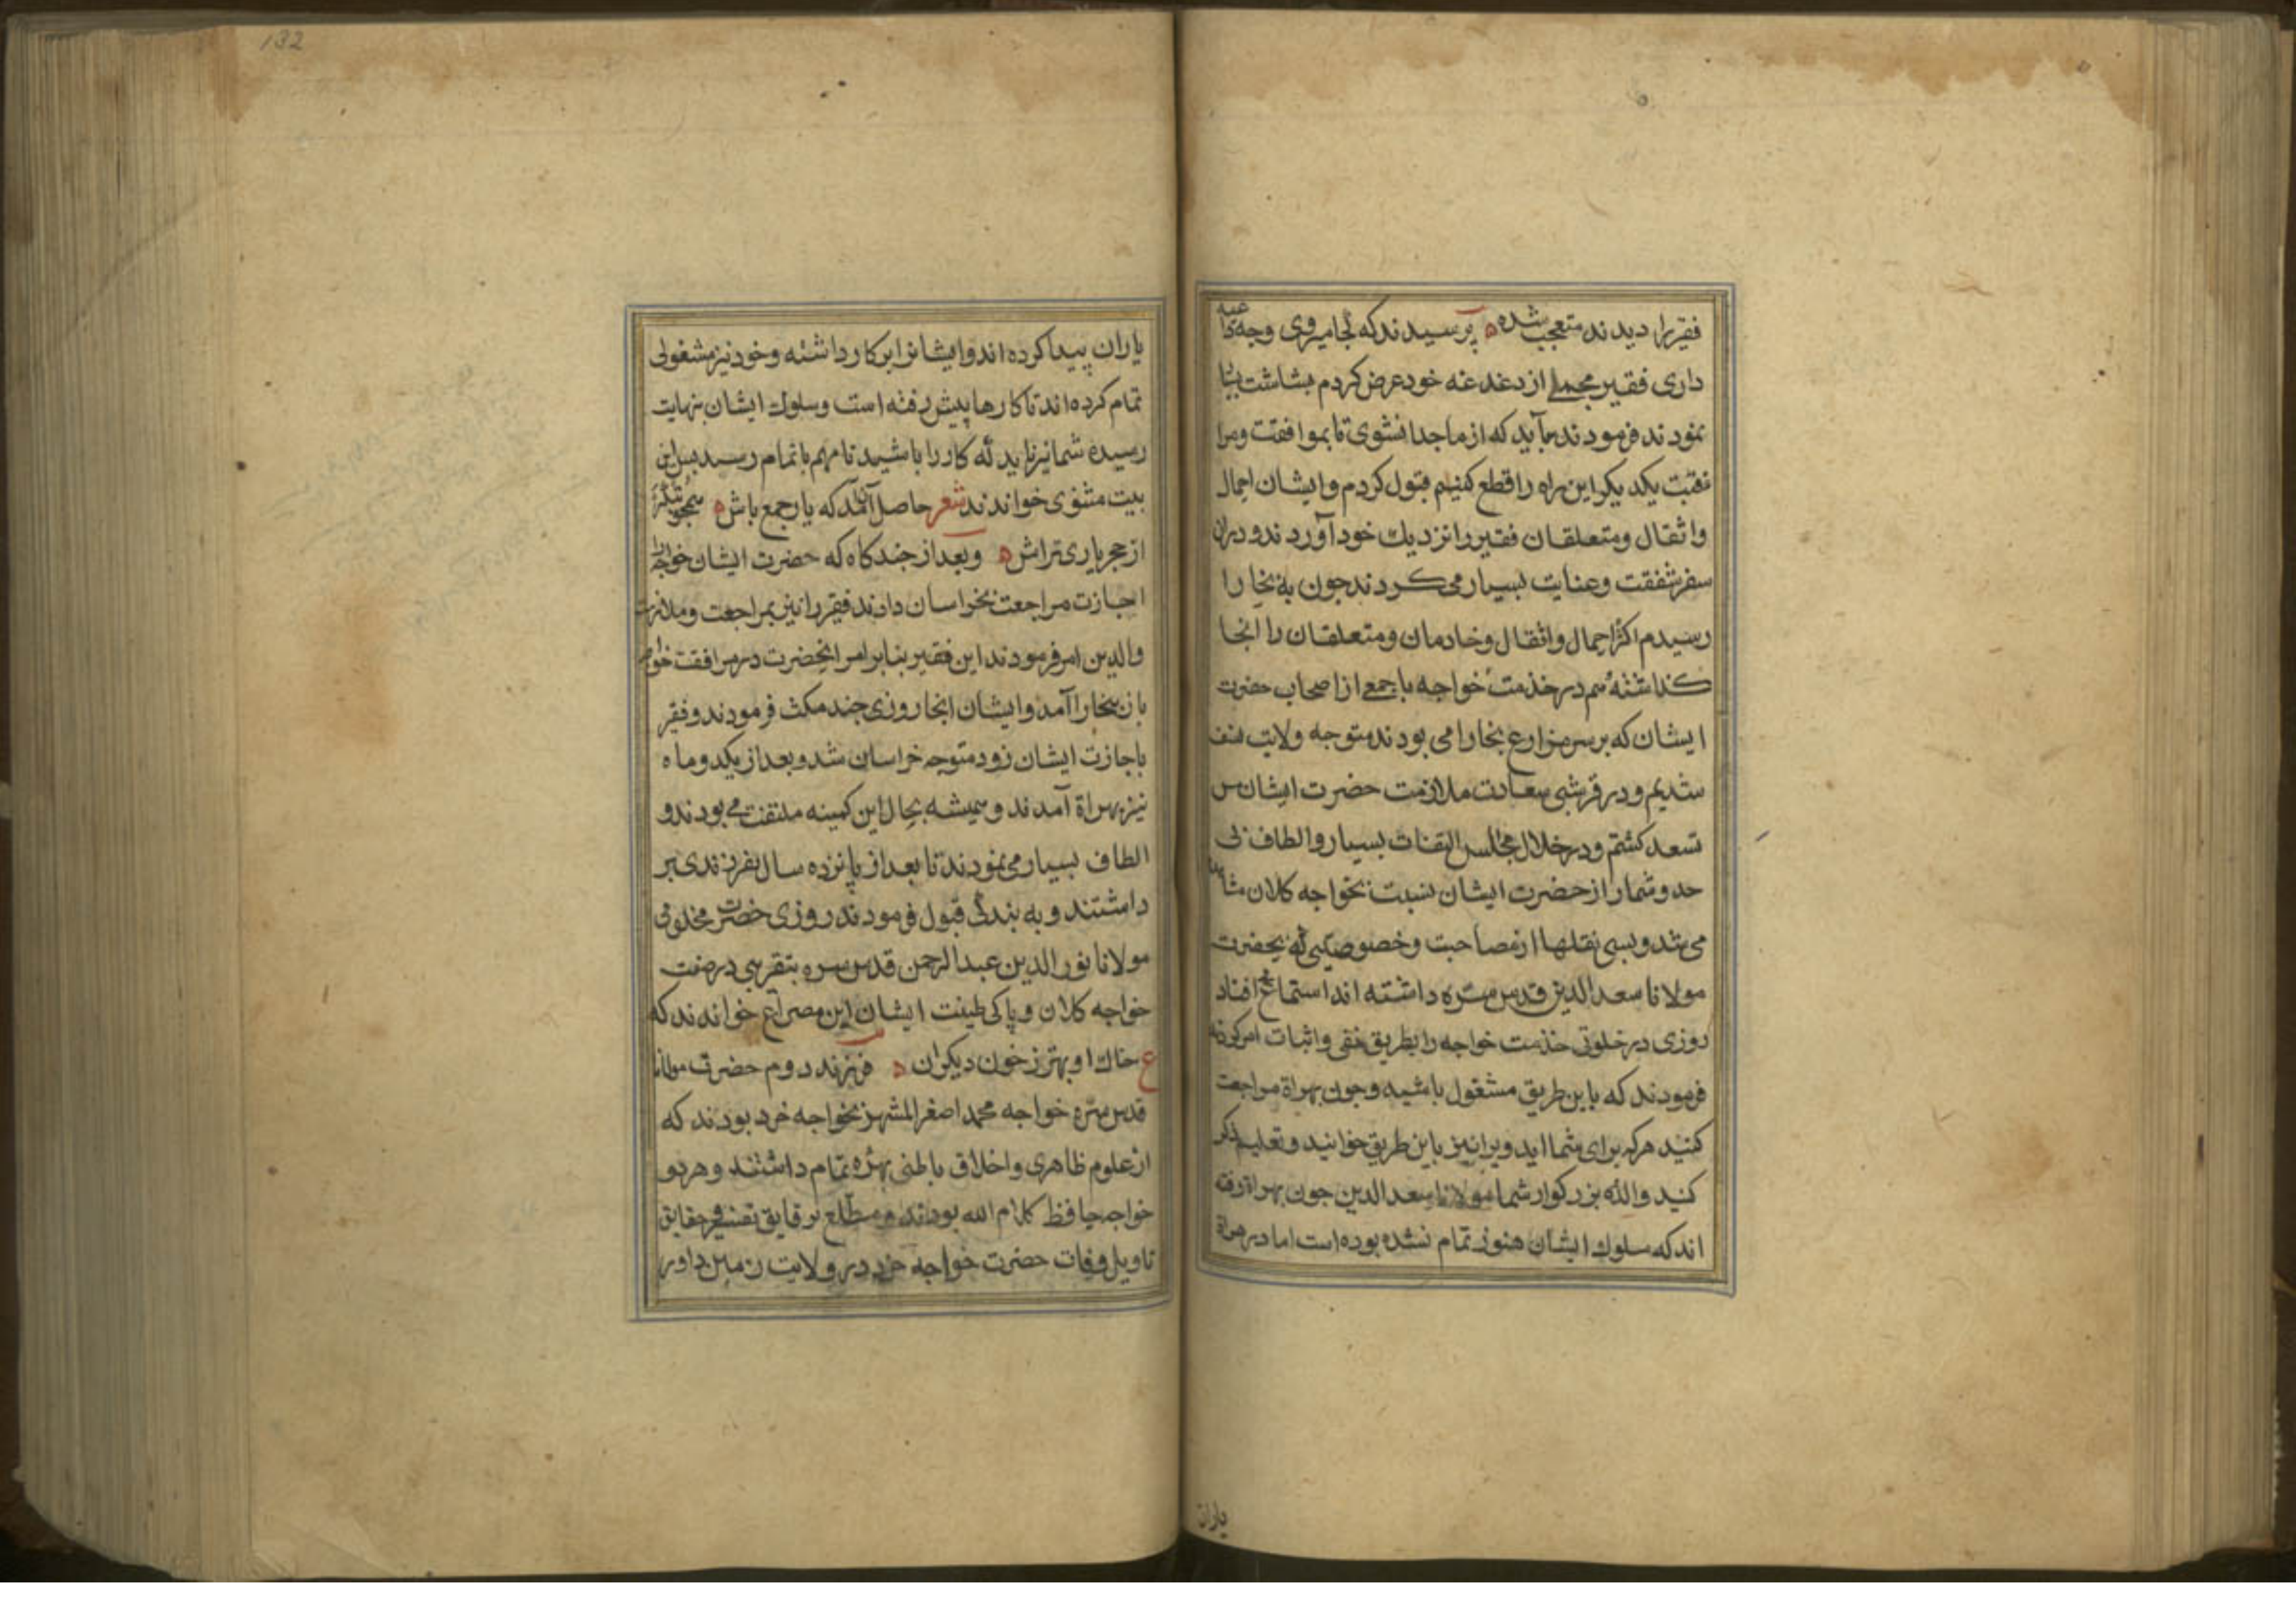 فقیررا دیدند متعجب شده پرسیدند که کجا میروی وجه داعیه
داری فقیر مجملی از دغدغه خود عرض کردم بشاشت بسیار
نمودند فرمودند باید که از ما جدا نشوی تا بموافقت ومرا
فقت یکدیکر این راه را قطع کنیم قبول کردم وایشان احمال
واثقال ومتعلقان فقیررا نزدیك خود آوردند ودران
سفر شفقت وعنایت بسیار می کردند جون به بخارا
رسیدم اکثر احمال واثقال وخادمان ومتعلقان را انجا
کذاشته هم در خدمت خواجه با جمعی از اصحاب حضرت
ایشان که بر سر مزارع بخارا می بودند متوجه ولایت نسف
شدیم ودر قرشی بسعادت ملازمت حضرت ایشان مس
تسعد کشتم ودر خلال مجالس التفات بسیار والطاف بی
حد وشمار از حضرت ایشان نسبت بخواجه کلان مشاهده
می شد وبسی نقلها از مصاحبت وخصوصیتی که بحضرت
مولانا سعد الدین قدس سره داشته اند استماع افتاد
روزی در خلوتی خدمت خواجه را بطریق نفی واثبات امر کردند
فرمودند که باین طریق مشغول باشید وجون بهراة مراجعت
کنید هرکه برای شما اید ویرا نیز باین طریق خوانید وتعلیم ذکر
کنید والد بزرکوار شما مولانا سعد الدین جون بهراة رفته
اند که سلوك ایشان هنوز تمام نشده بوده است اما در هراة
یاران
132
یاران پیدا کرده اند وایشانرا برین کار داشته وخود نیز مشغولی
تمام کرده اند تا کارها پیش رفته است وسلوك ایشان بنهایت
رسیده شما نیز باید که کاررا باشید تا مهم باتمام رسد پس این
بیت مثنوی خواندند شعر حاصل آن آمد که یار جمع باش همجو بتکر
از حجر یاری تراش وبعد از جند کاه که حضرت ایشان خواجه را
اجازت مراجعت بخراسان دادند فقیررا نیز بمراجعت وملازمت
والدین امر فرمودند این فقیر بنابر امر انحضرت در مرافقت خواجه
باز ببخارا آمد وایشان انجا روزی جند مکث فرمودند وفقیر
باجازت ایشان زود متوجه خراسان شد وبعد از یکدوماه
نیز بهراة آمدند وهمیشه بحال این کمینه ملتفت می بودند و
الطاف بسیار می نمودند تا بعد از پانزده سال بفرزندی بر
داشتند وبه بندکی قبول فرمودند روزی حضرت مخدومی
مولانا نور الدین عبد الرحمن قدس سره بتقریبی در صفت
خواجه کلان وپاکی طینت ایشان این مصراع خواندند که
ع خاك او بهتر ز خون دیکران فرزند دوم حضرت مولانا
قدس سره خواجه محمد اصغر المشهر بخواجه خرد بودند که
از علوم ظاهری واخلاق باطنی بهره تمام داشتند وهر دو
خواجه حافظ کلام الله بودند ومطلع بر قایق تفسیر وحقایق
تاویل وفات حضرت خواجه خرد در ولایت زمین داور